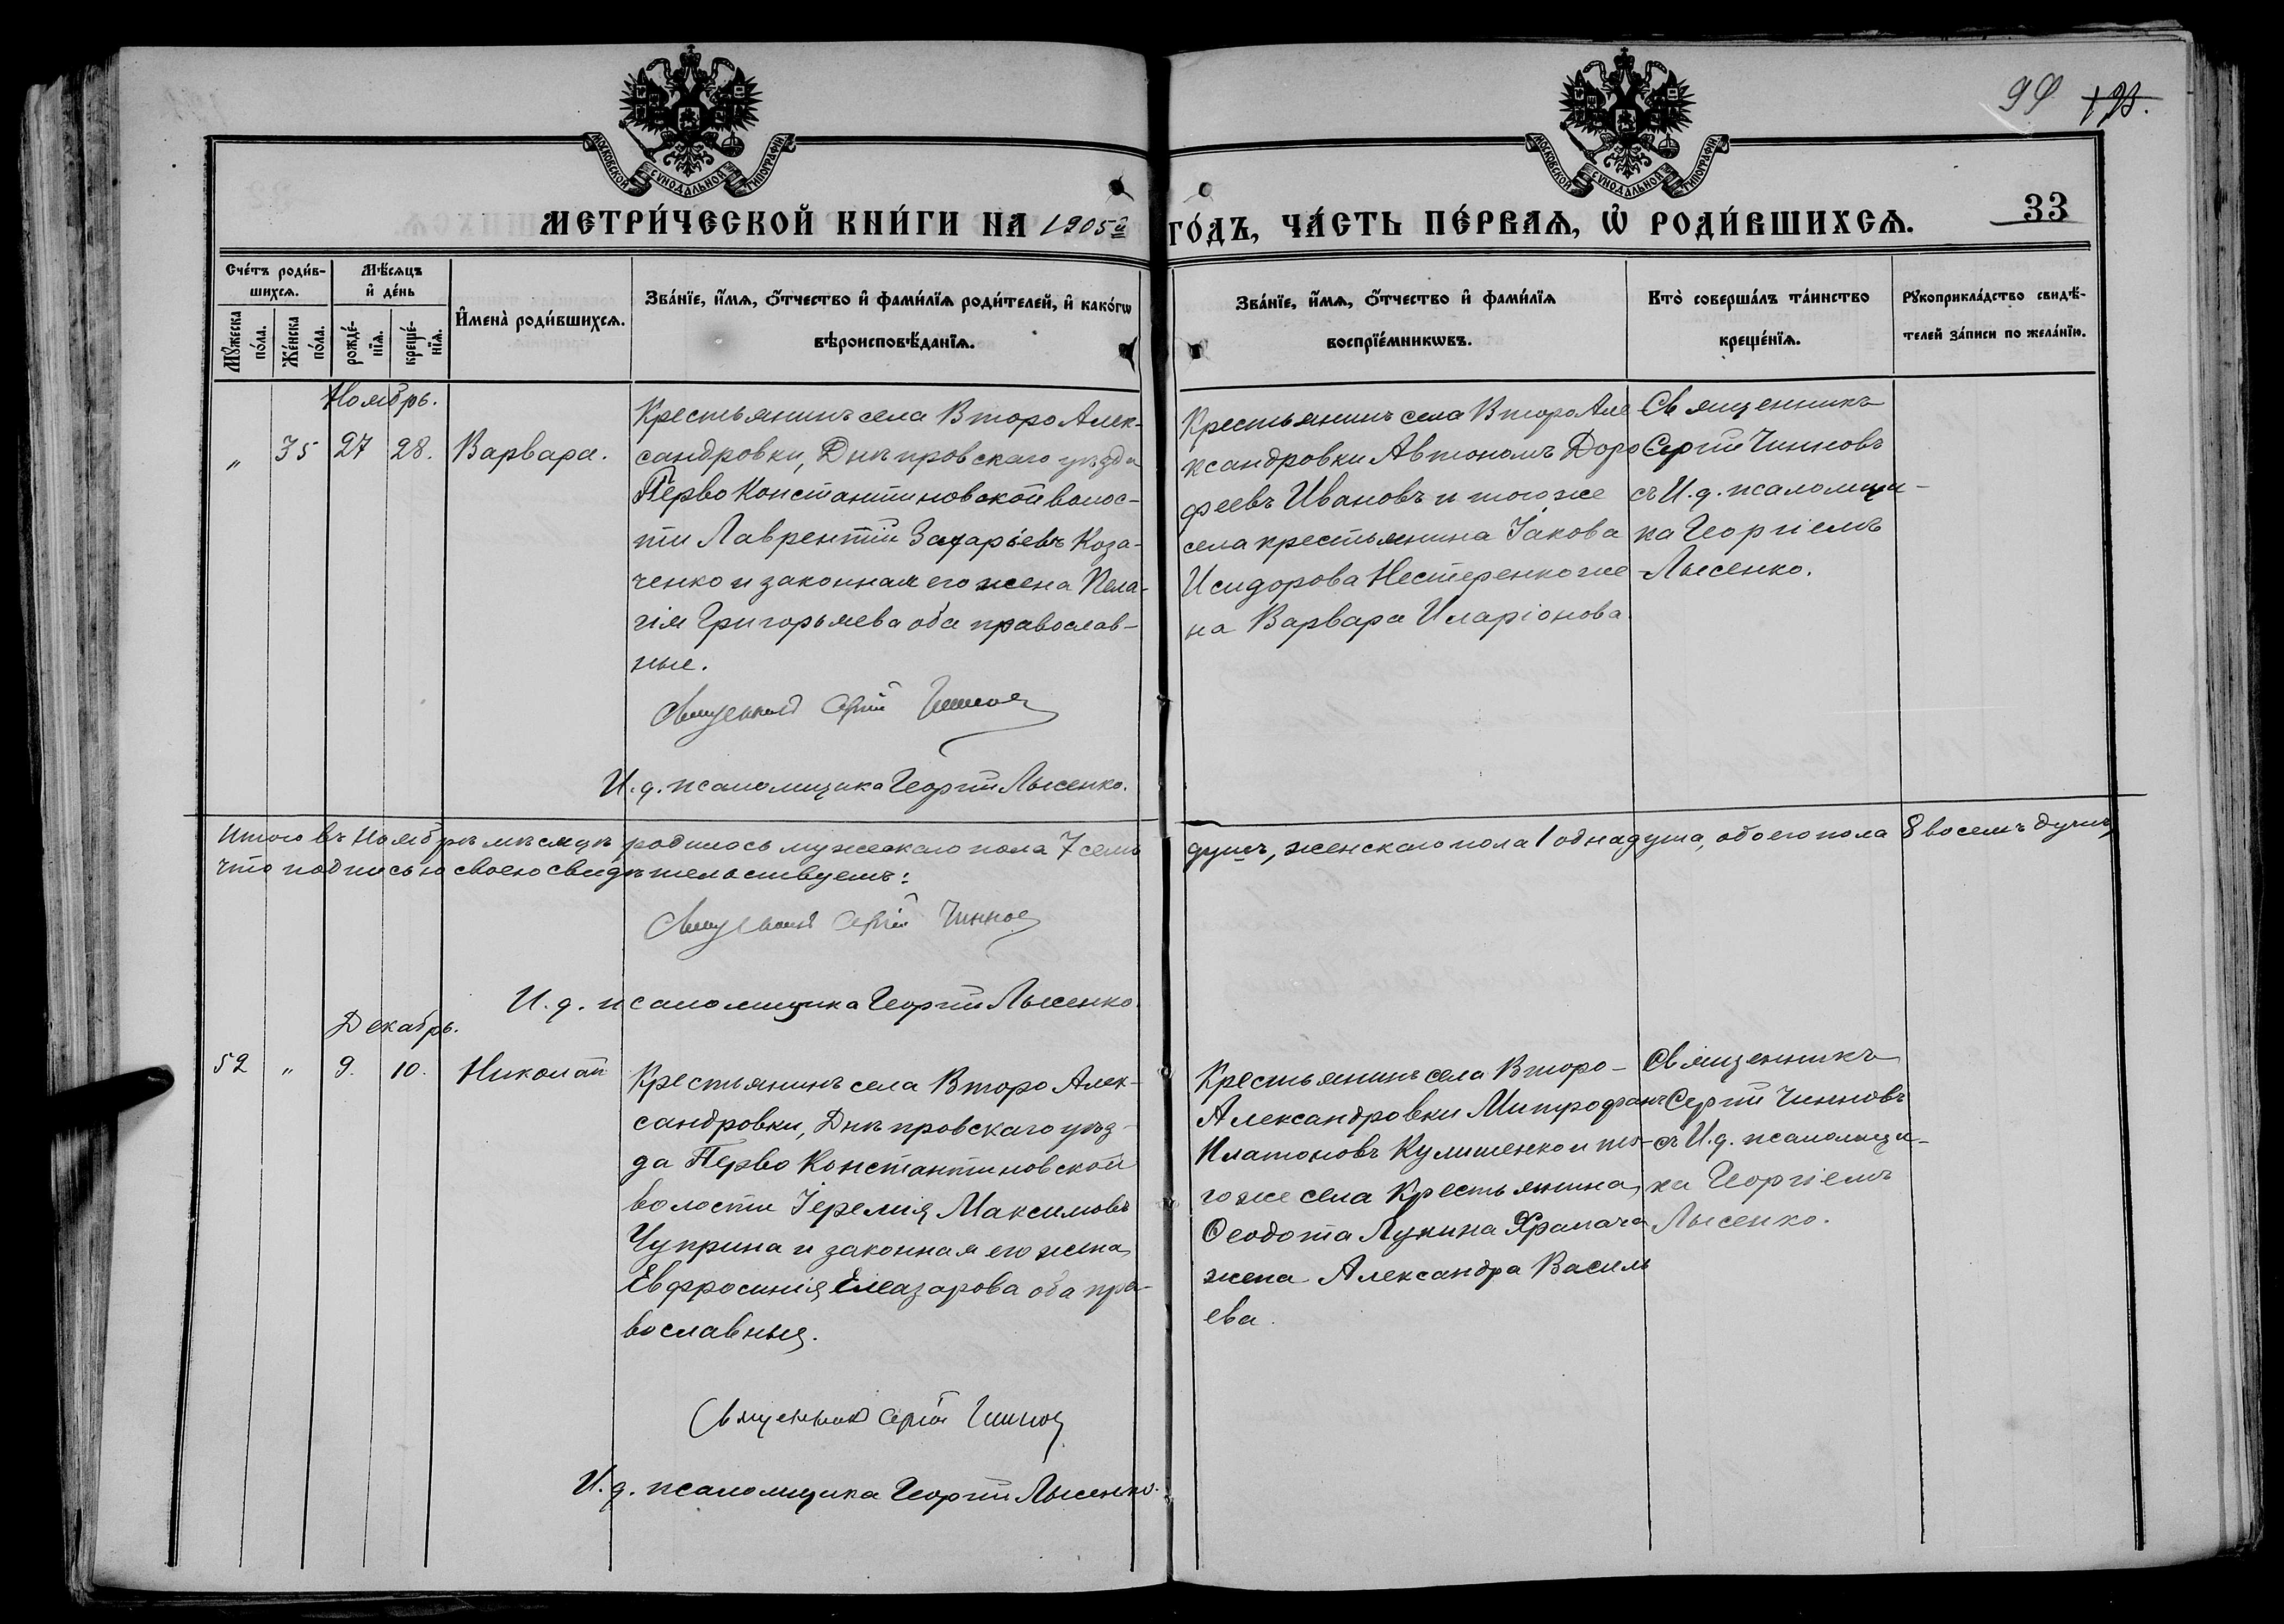 99 123.
МОСКОВСКОЙ СѴНОДАЛЬНОЙ ТИПОГРАФІИ.
МОСКОВСКОЙ СѴНОДАЛЬНОЙ ТИПОГРАФІИ.
МЕТРИ́ЧЕСКОЙ КНИ́ГИ НА 1905й ГО́ДЪ, ЧА́СТЬ ПЕ́РВАѦ, Ѡ҆ РОДИ́ВШИХСѦ. 33
Сче́тъ роди́в-
шихсѧ.
Мꙋ́жеска по́ла.
Же́нска по́ла.
Мѣ́сѧцъ
и҆ де́нь
рожде́-нїѧ.
креще́-нїѧ.
И҆мена̀ роди́вшихсѧ.
Зва́нїе, и҆́мѧ, ѻ҆́тчество и҆ фами́лїѧ роди́телей, и҆ како́гѡ
вѣроисповѣ́данїѧ.
Зва́нїе, и҆́мѧ, ѻ҆́тчество и҆ фами́лїѧ
воспрїе́мникѡвъ.
Кто̀ соверша́лъ та́инство
креще́нїѧ.
Рꙋкоприкла́дство свидѣ́-
телей за́писи по жела́нїю.
Ноябрь.
" 35 27 28. Варвара.
Крестьянинъ села Второ Алек-
сандровки, Днѣпровскаго уѣзда
Перво Константиновской волос-
ти Лаврентій Захаріевъ Коза-
ченко и законная его жена Пела-
гія Григорьяева оба православ-
ные.
Священникъ Сергій Чинновъ
И. д. псаломщика Георгій Лысенко.
Крестьянинъ села Второ Але
ксандровки Автономъ Доро
феевъ Ивановъ и того же
села крестьянина Іакова
Исидорова Нестеренко же-
на Варвара Иларіонова.
Священникъ
Сергій Чинновъ
съ И. д. псаломщи-
ка Георгіемъ
Лысенко.
Итого въ Ноябрѣ мѣсяцѣ родилось мужескаго пола 7 семь душъ, женскаго пола 1 одна душа, обоего пола 8 восемь душъ,
что подписью своею свидѣтельствуемъ:
Священникъ Сергій Чинновъ
И. д. псаломщика Георгій Лысенко.
Декабрь.
52 " 9. 10. Николай
Крестьянинъ села Второ Алек-
сандровки, Днѣпровскаго уѣз-
да Перво Константиновской
волости Іеремія Максимовъ
Чуприна и законная его жена
Евфросинія Елеазарова оба пра-
вославныя.
Священникъ Сергій Чинновъ
И. д. псаломщика Георгій Лысенко.
Крестьянинъ села Второ-
Александровки Митрофанъ
Платоновъ Кулишенко и то-
го же села Крестьянина
Ѳеодота Лукина Храпача
жена Александра Василь
ева.
Священникъ
Сергій Чинновъ
съ И. д. псаломщи-
ка Георгіемъ
Лысенко.